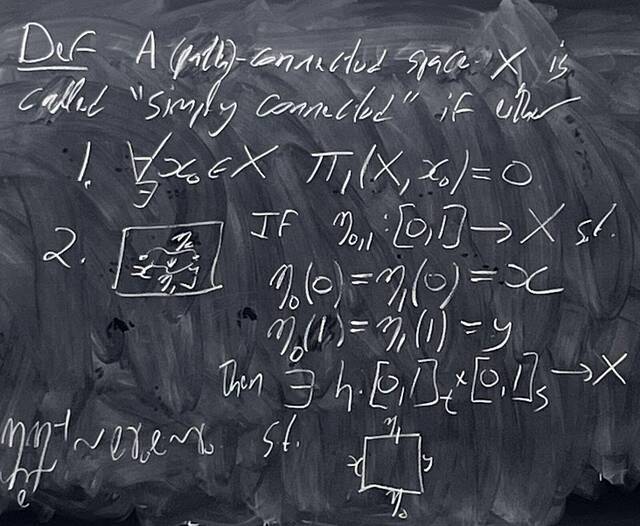 Def A (path)-connected space X is
called "simply connected" if either
1. ∀∃ x₀ ∈ X π₁(X, x₀) = 0
2. η₀ x y η₁ IF η₀,₁ : [0,1] → X s.t.
η₀(0) = η₁(0) = x
η₀(1) = η₁(1) = y
Then ∃ h : [0,1]ₜ × [0,1]ₛ → X
s.t. η₁ x y η₀
ηη⁻¹ ~
e